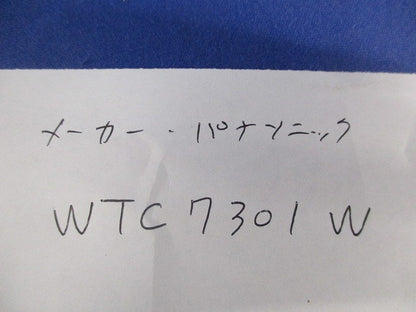 メーカー・パナソニック
WTC7301W